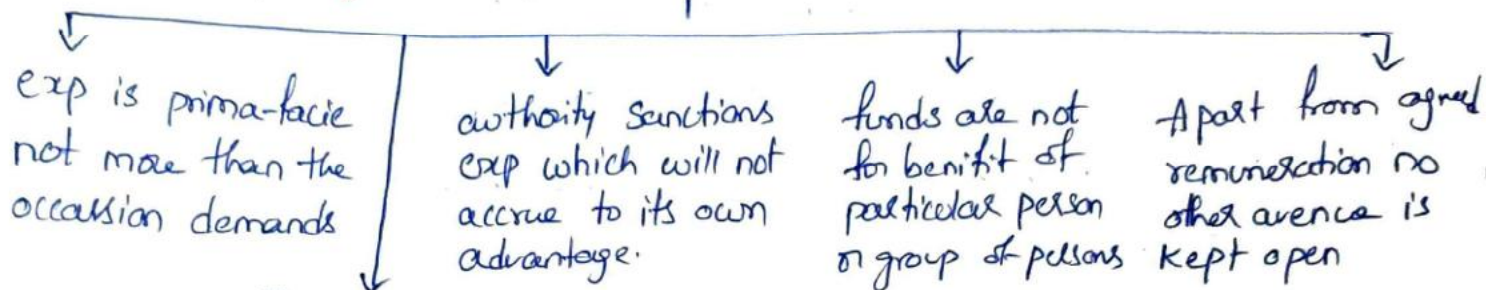 exp is prima-facie
not more than the
occassion demands
authority sanctions
exp which will not
accrue to its own
advantage.
funds are not
for benifit of
particular person
or group of persons
Apart from agreed
remuneration no
other avenue is
kept open